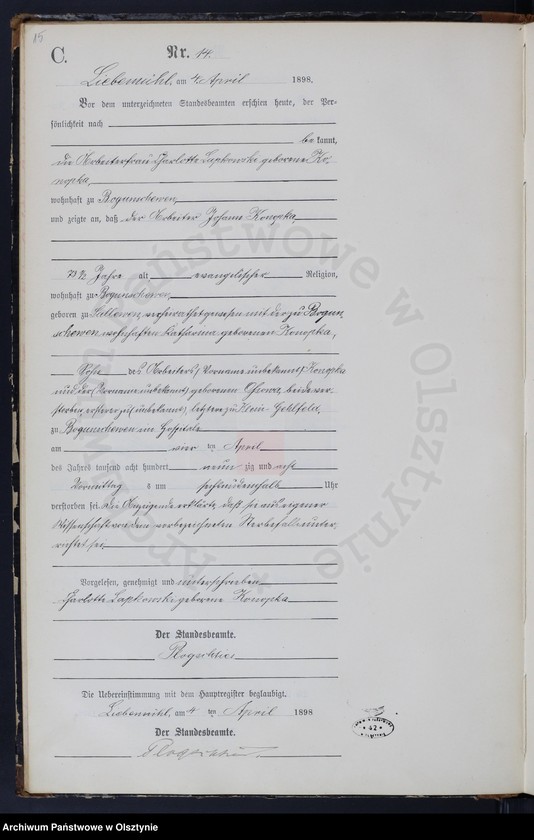 15
C.
Nr. 14.
Liebemühl, am 4. April 1898.
Vor dem unterzeichneten Standesbeamten erschien heute, der Per-
sönlichkeit nach
be kannt,
die Arbeiterfrau Charlotte Lapkowski geborene Ko-
nopka,
wohnhaft zu Bogunschewen,
und zeigte an, daß der Arbeiter Johann Konopka,
73 ½ Jahre alt evangelischer Religion,
wohnhaft zu Bogunschewen,
geboren zu verheirathet gewesen mit der zu Bogun-
schewen wohnhaften Katharina geborenen Konopka,
Sohn des Arbeiters (Vorname unbekannt) Konopka
und der (Vorname unbekannt) geborenen beide ver-
storben, ersterer unbekannt, letztere zu Klein Gehlfeld,
zu Bogunschewen im Hospitale
am vier ten April
des Jahres tausend acht hundert neun zig und acht
Vormittag s um sechseinhalb Uhr
verstorben sei. Die Anzeigende erklärte, daß sie aus eigener
Wissenschaft von dem vorbezeichneten Sterbefalle unter-
richtet sei.
Vorgelesen, genehmigt und unterschrieben
Charlotte Lapkowski geborene Konopka
Der Standesbeamte.
Die Uebereinstimmung mit dem Hauptregister beglaubigt.
Liebemühl, am 4 ten April 1898
Der Standesbeamte.
42
Archiwum Państwowe w Olsztynie
Archiwum Państwowe w Olsztynie